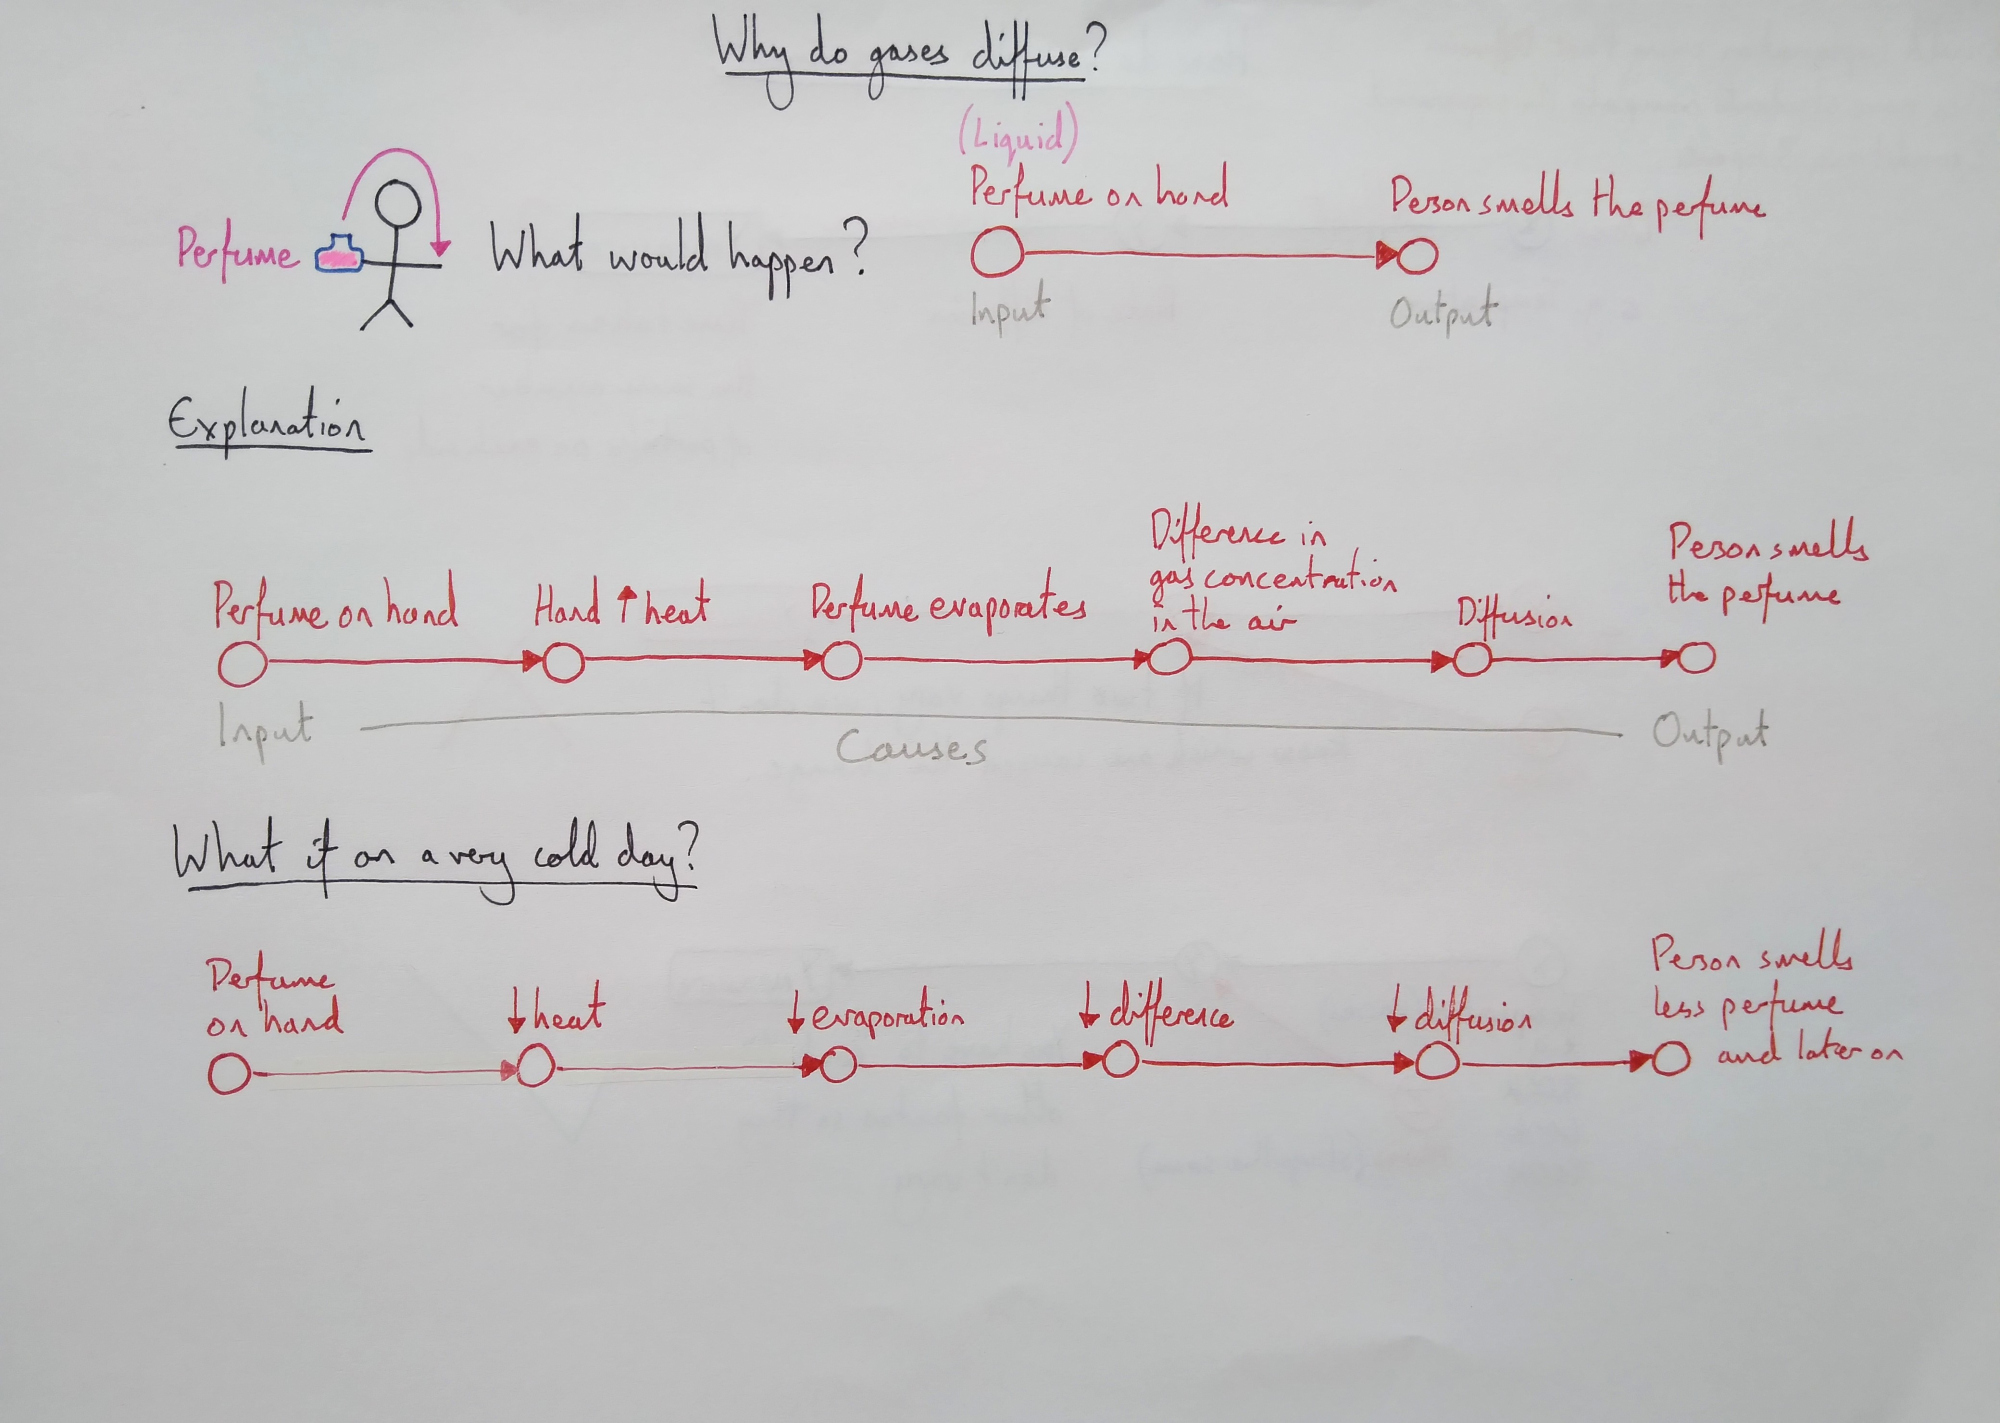 Why do gases diffuse?
(Liquid)
Perfume on hand
Person smells the perfume
Perfume
What would happen?
Input
Output
Explanation
Perfume on hand
Hand ↑ heat
Perfume evaporates
Difference in
gas concentration
in the air
Diffusion
Person smells
the perfume
Input
Causes
Output
What if on a very cold day?
Perfume
on hand
↓ heat
↓ evaporation
↓ difference
↓ diffusion
Person smells
less perfume
and later on